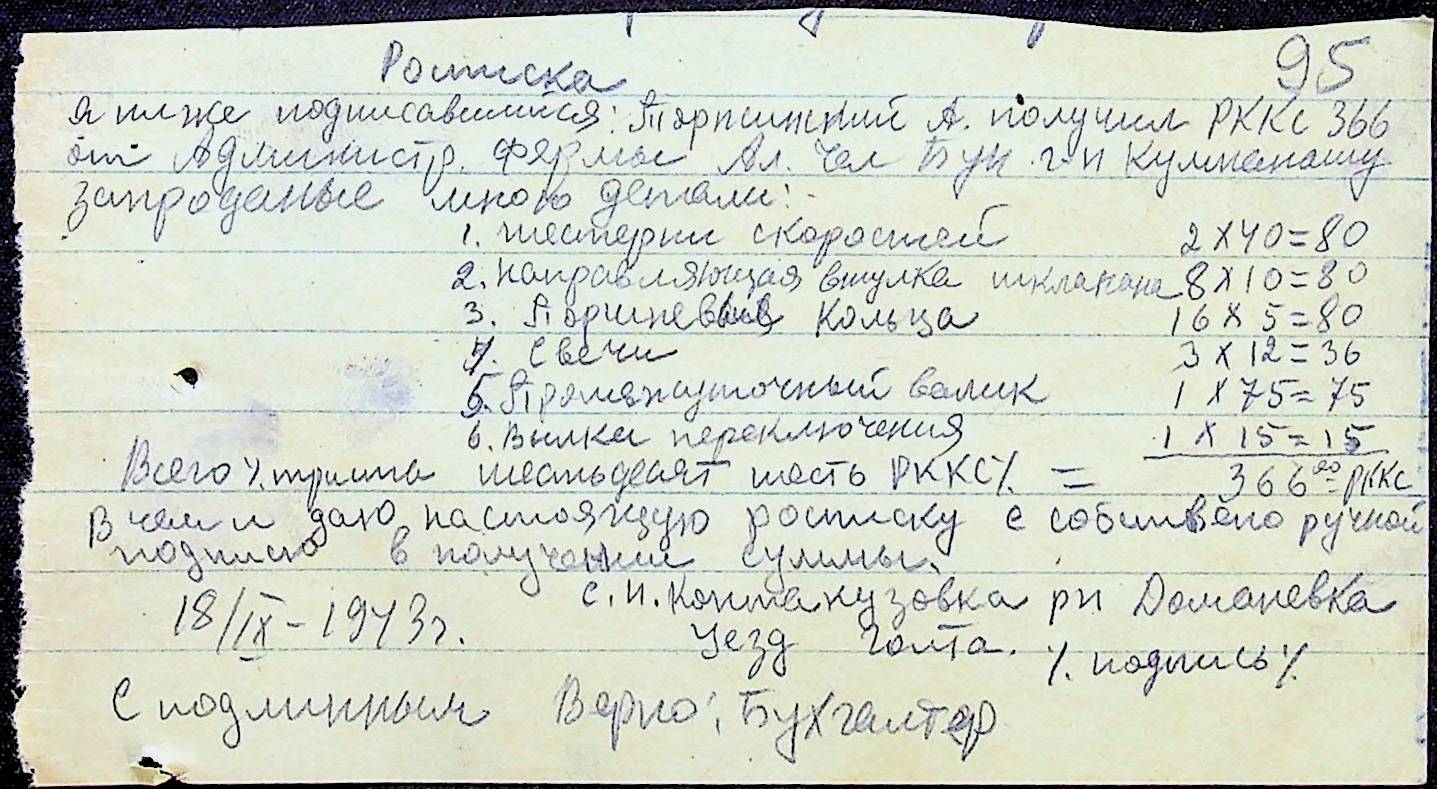 95
Росписка
Я ниже подписавшийся: Торжинский А. получил РККС 366
от Администр. фермы Ал. Чел Бун г-н Кулианашу
запроданые мною детали:-
1. Шестерни скоростей 2 х 40 = 80
2. Направляющая втулка шклапана 8 х 10 = 80
3. Поршневые Кольца 16 х 5 = 80
4. Свечи 3 х 12 = 36
5. Промежуточный валик 1 х 75 = 75
6. Вилка переключения 1 х 15 = 15
Всего ٪ триста шестьдесят шесть РККС٪ = 366 00 РККС
В чем и даю настоящую росписку с собствено ручной
подписю в получении суммы.
с. н. Контакузовка рн Доманевка
18/IX - 1943 г. Уезд Голта. ٪ подпись ٪
С подлинным Верно: Бухгалтер